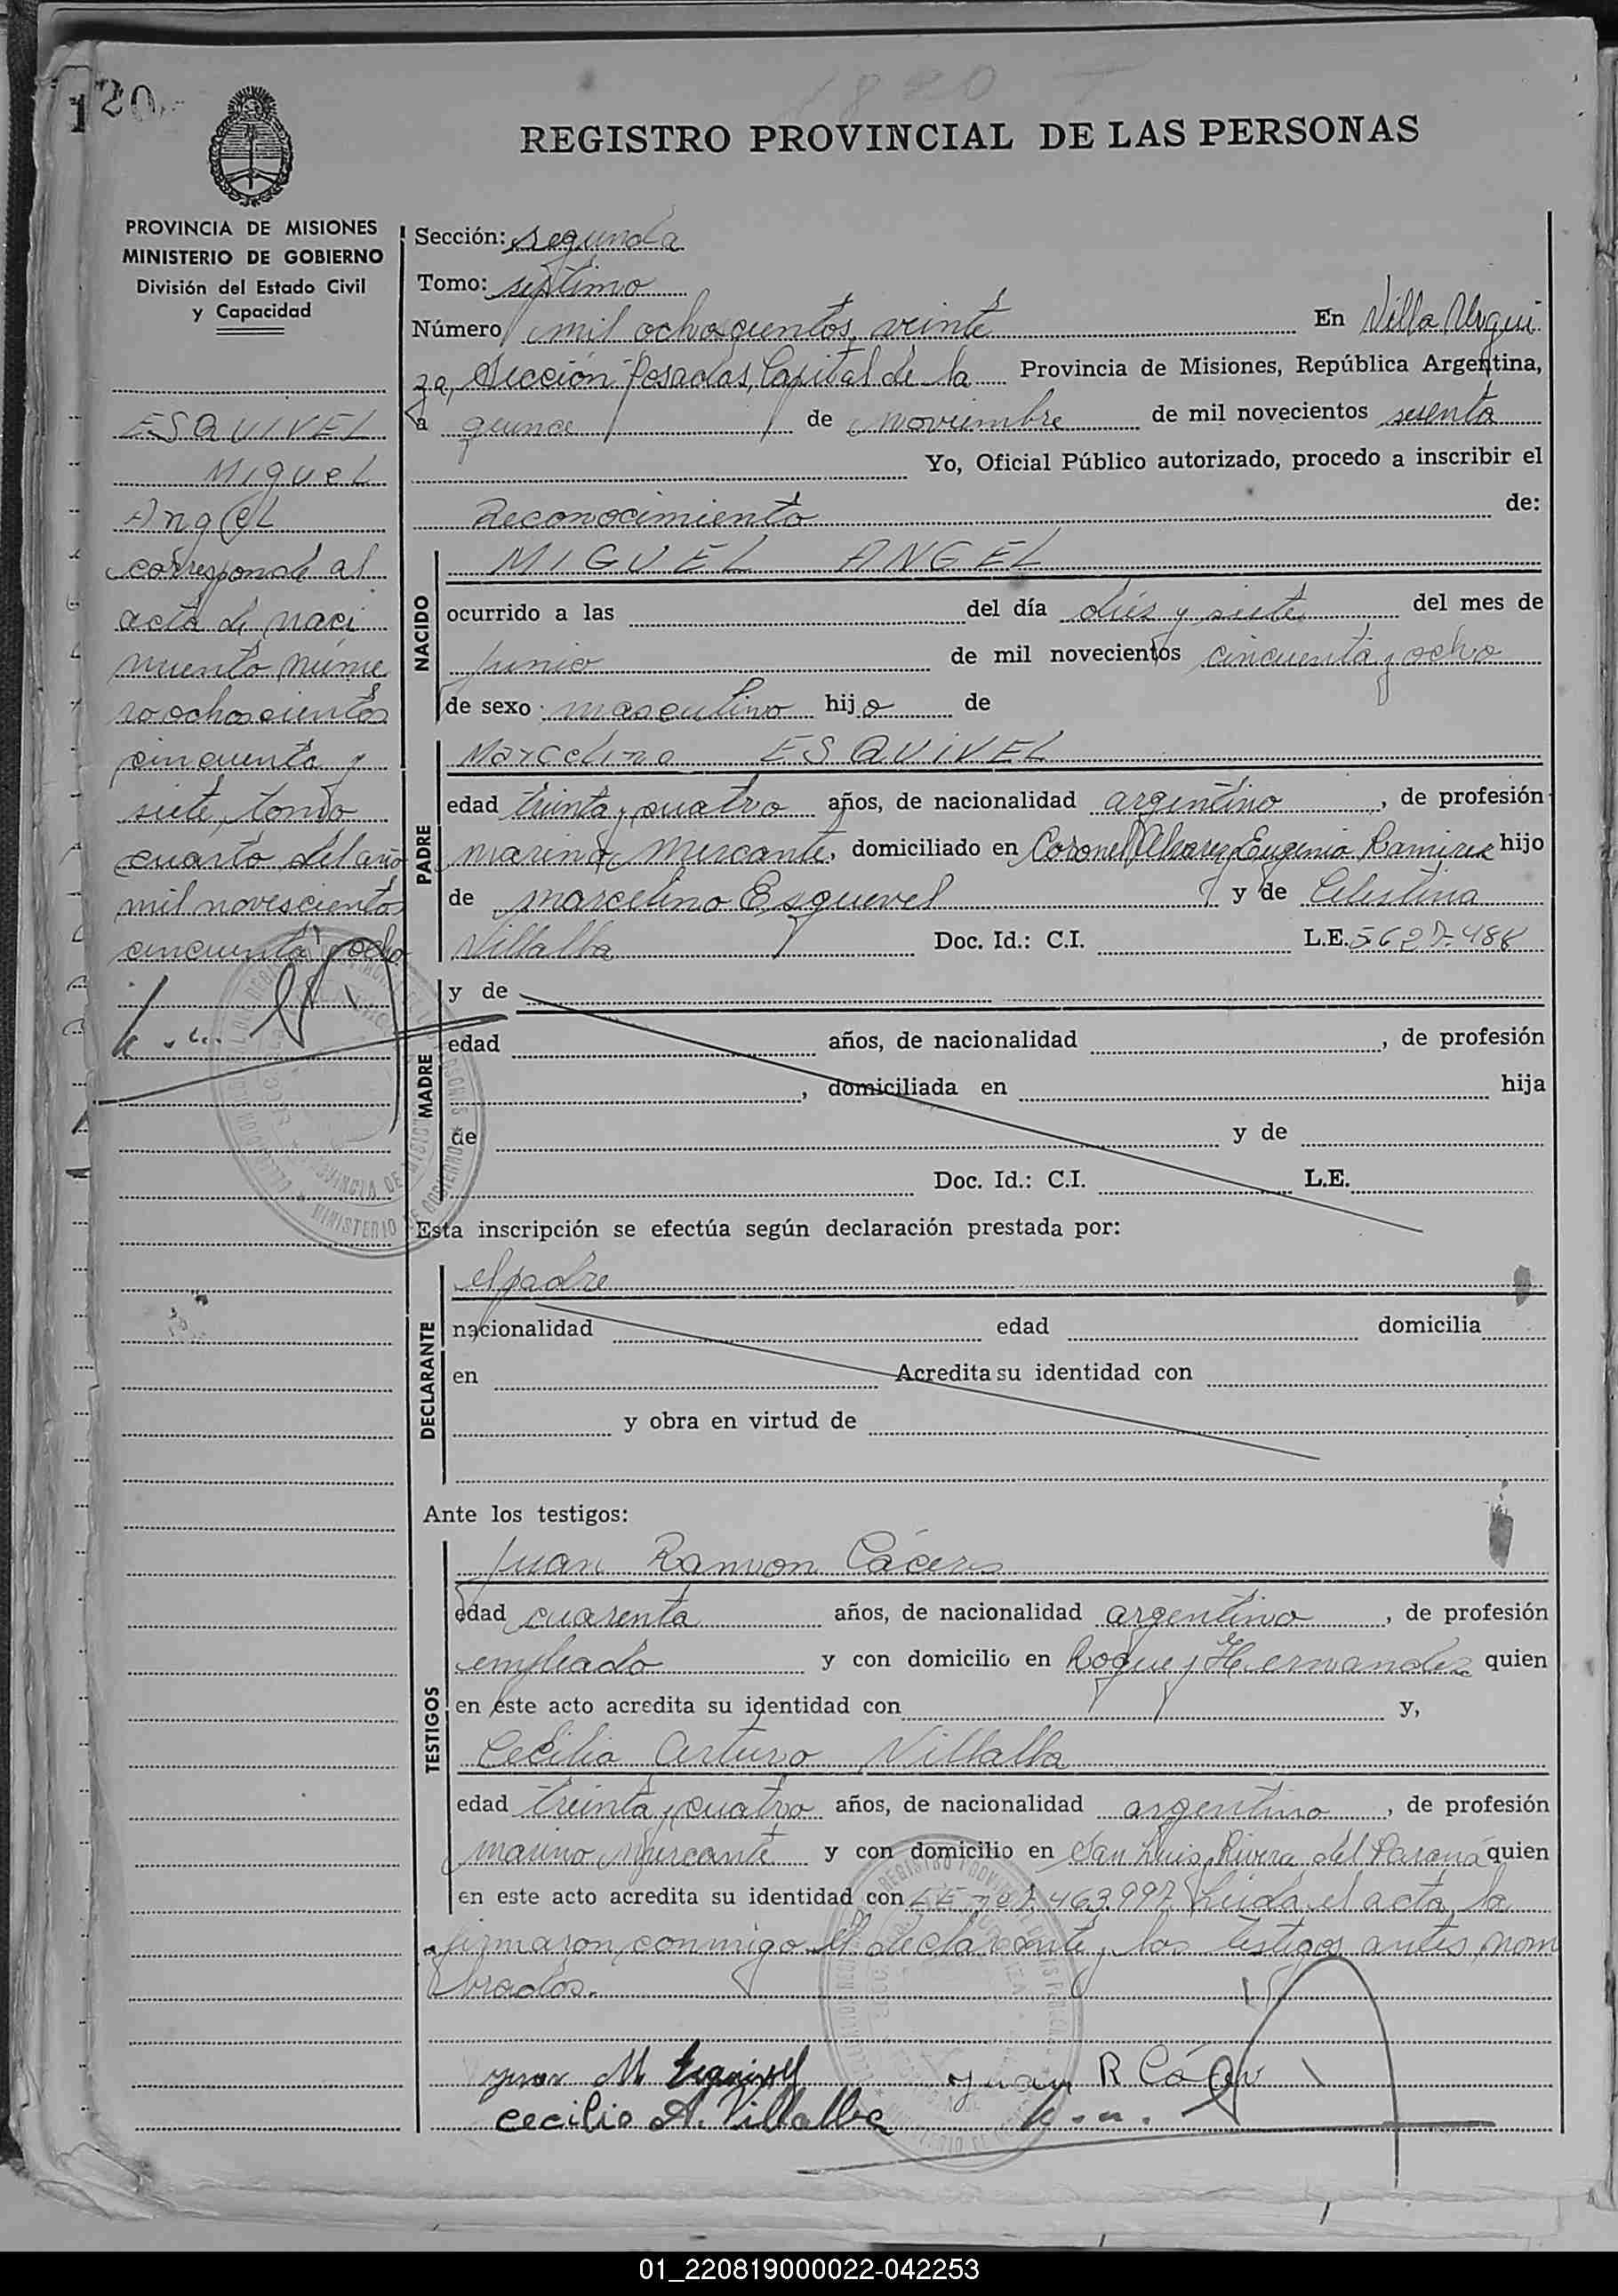 120
1820
REGISTRO PROVINCIAL DE LAS PERSONAS
PROVINCIA DE MISIONES
MINISTERIO DE GOBIERNO
División del Estado Civil
y Capacidad
ESQUIVEL
Miguel
Angel
corresponde al
acta de naci
miento núme
ro ochoscientos
cincuenta y
siete, tomo
cuarto del año
mil novescientos
cincuenta y ocho
Sección: segunda
Tomo: séptimo
Número mil ochoscientos veinte En Villa Urqui
za, Sección Posadas, Capital de la Provincia de Misiones, República Argentina,
a quince de noviembre de mil novecientos sesenta
Yo, Oficial Público autorizado, procedo a inscribir el
Reconocimiento de:
NACIDO
MIGUEL ANGEL
ocurrido a las del día diés y siete del mes de
Junio de mil novecientos cincuenta y ocho
de sexo masculino hijo de
PADRE
Marcelino ESQUIVEL
edad treinta y cuatro años, de nacionalidad argentino, de profesión
marino mercante, domiciliado en Coronel Alvarez y Eugenio Ramirez hijo
de marcelino Esquevel y de Celestina
Villalba Doc. Id.: C.I. L.E. 5.627.488
MADRE
y de
edad años, de nacionalidad , de profesión
, domiciliada en hija
de y de
Doc. Id.: C.I. L.E.
Esta inscripción se efectúa según declaración prestada por:
DECLARANTE
el padre
nacionalidad edad domicilia
en Acredita su identidad con
y obra en virtud de
Ante los testigos:
TESTIGOS
Juan Ramon Cáceres
edad cuarenta años, de nacionalidad argentino, de profesión
empleado y con domicilio en Roque y Hernandez quien
en este acto acredita su identidad con y,
Cecilio Arturo Villalba
edad treinta y cuatro años, de nacionalidad argentino, de profesión
marino mercante y con domicilio en San Luis, Rivera del Paraná quien
en este acto acredita su identidad con L.E. 7.463.997 Leida el acta, la
firmaron conmigo el declarante y los testigos antes nom
brados.
M Esquivel Juan R Cáceres
Cecilio A. Villalba
01_220819000022-042253